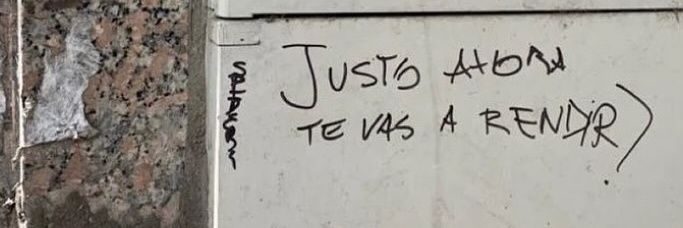 JUSTO AHORA
TE VAS A RENDIR?